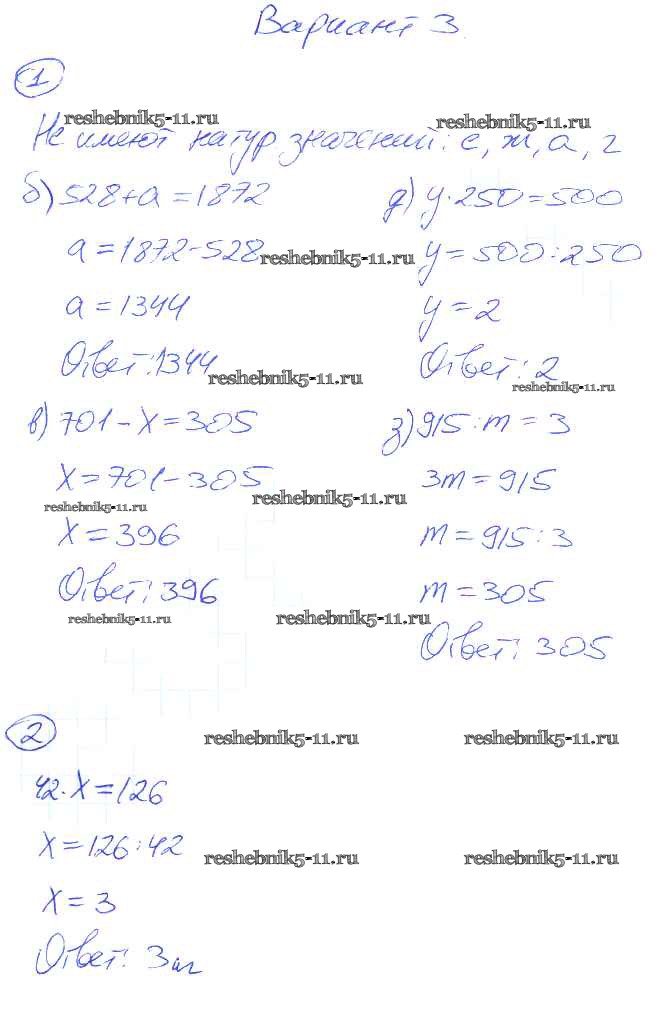 Вариант 3
1
reshebnik5-11.ru reshebnik5-11.ru
Не имеют натур значений: е, ж, а, г
б) 528+a=1872
a=1872-528
reshebnik5-11.ru
a=1344
Ответ: 1344
reshebnik5-11.ru
д) y·250=500
y=500:250
y=2
Ответ: 2
reshebnik5-11.ru
в) 701-x=305
x=701-305
reshebnik5-11.ru
reshebnik5-11.ru
x=396
Ответ: 396
reshebnik5-11.ru
reshebnik5-11.ru
з) 915:m=3
3m=915
m=915:3
m=305
Ответ: 305
2
reshebnik5-11.ru reshebnik5-11.ru
42·x=126
x=126:42
reshebnik5-11.ru reshebnik5-11.ru
x=3
Ответ: 3